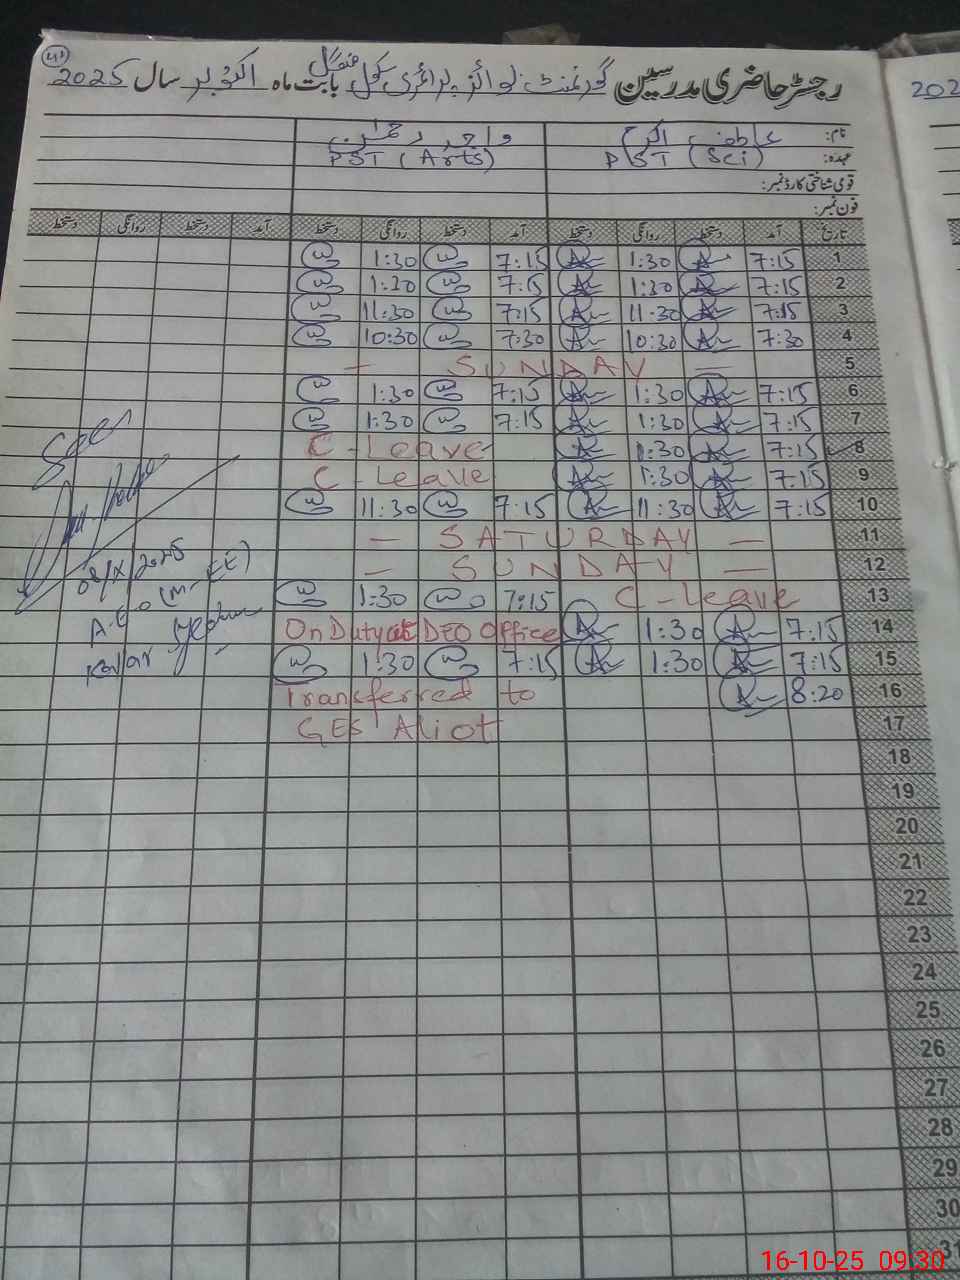 رجسٹر حاضری مدرسین گورنمنٹ بوائز پرائمری سکول منگل بابت ماہ اکتوبر سال 2025
نام: عاطف اکرم واجد رحمٰن
عہدہ: PST (Sci) PST (Arts)
قومی شناختی کارڈ نمبر:
فون نمبر:
تاریخ آمد دستخط روانگی دستخط آمد دستخط روانگی دستخط آمد دستخط روانگی دستخط
1 7:15 1:30 7:15 1:30
2 7:15 1:30 7:15 1:30
3 7:15 11:30 7:15 11:30
4 7:30 10:30 7:30 10:30
5 — SUNDAY —
6 7:15 1:30 7:15 1:30
7 7:15 1:30 7:15 1:30
8 7:15 1:30 C-Leave
9 7:15 1:30 C-Leave
10 7:15 11:30 7:15 11:30
11 — SATURDAY —
12 — SUNDAY —
13 C-Leave 7:15 1:30
14 7:15 1:30 On Duty at DEO Office
15 7:15 1:30 7:15 1:30
16 8:20 Transferred to
17 GES Aliot
18
19
20
21
22
23
24
25
26
27
28
29
30
31
Seen
08/X/2025
A.E.O (M-EE)
202
16-10-25 09:30